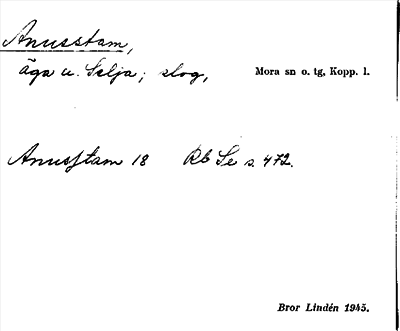 Anusstam,
äga u. Selja; skog,
Mora sn o. tg, Kopp. l.
Anusstam 18 Rb Se s. 472.
Bror Lindén 1945.